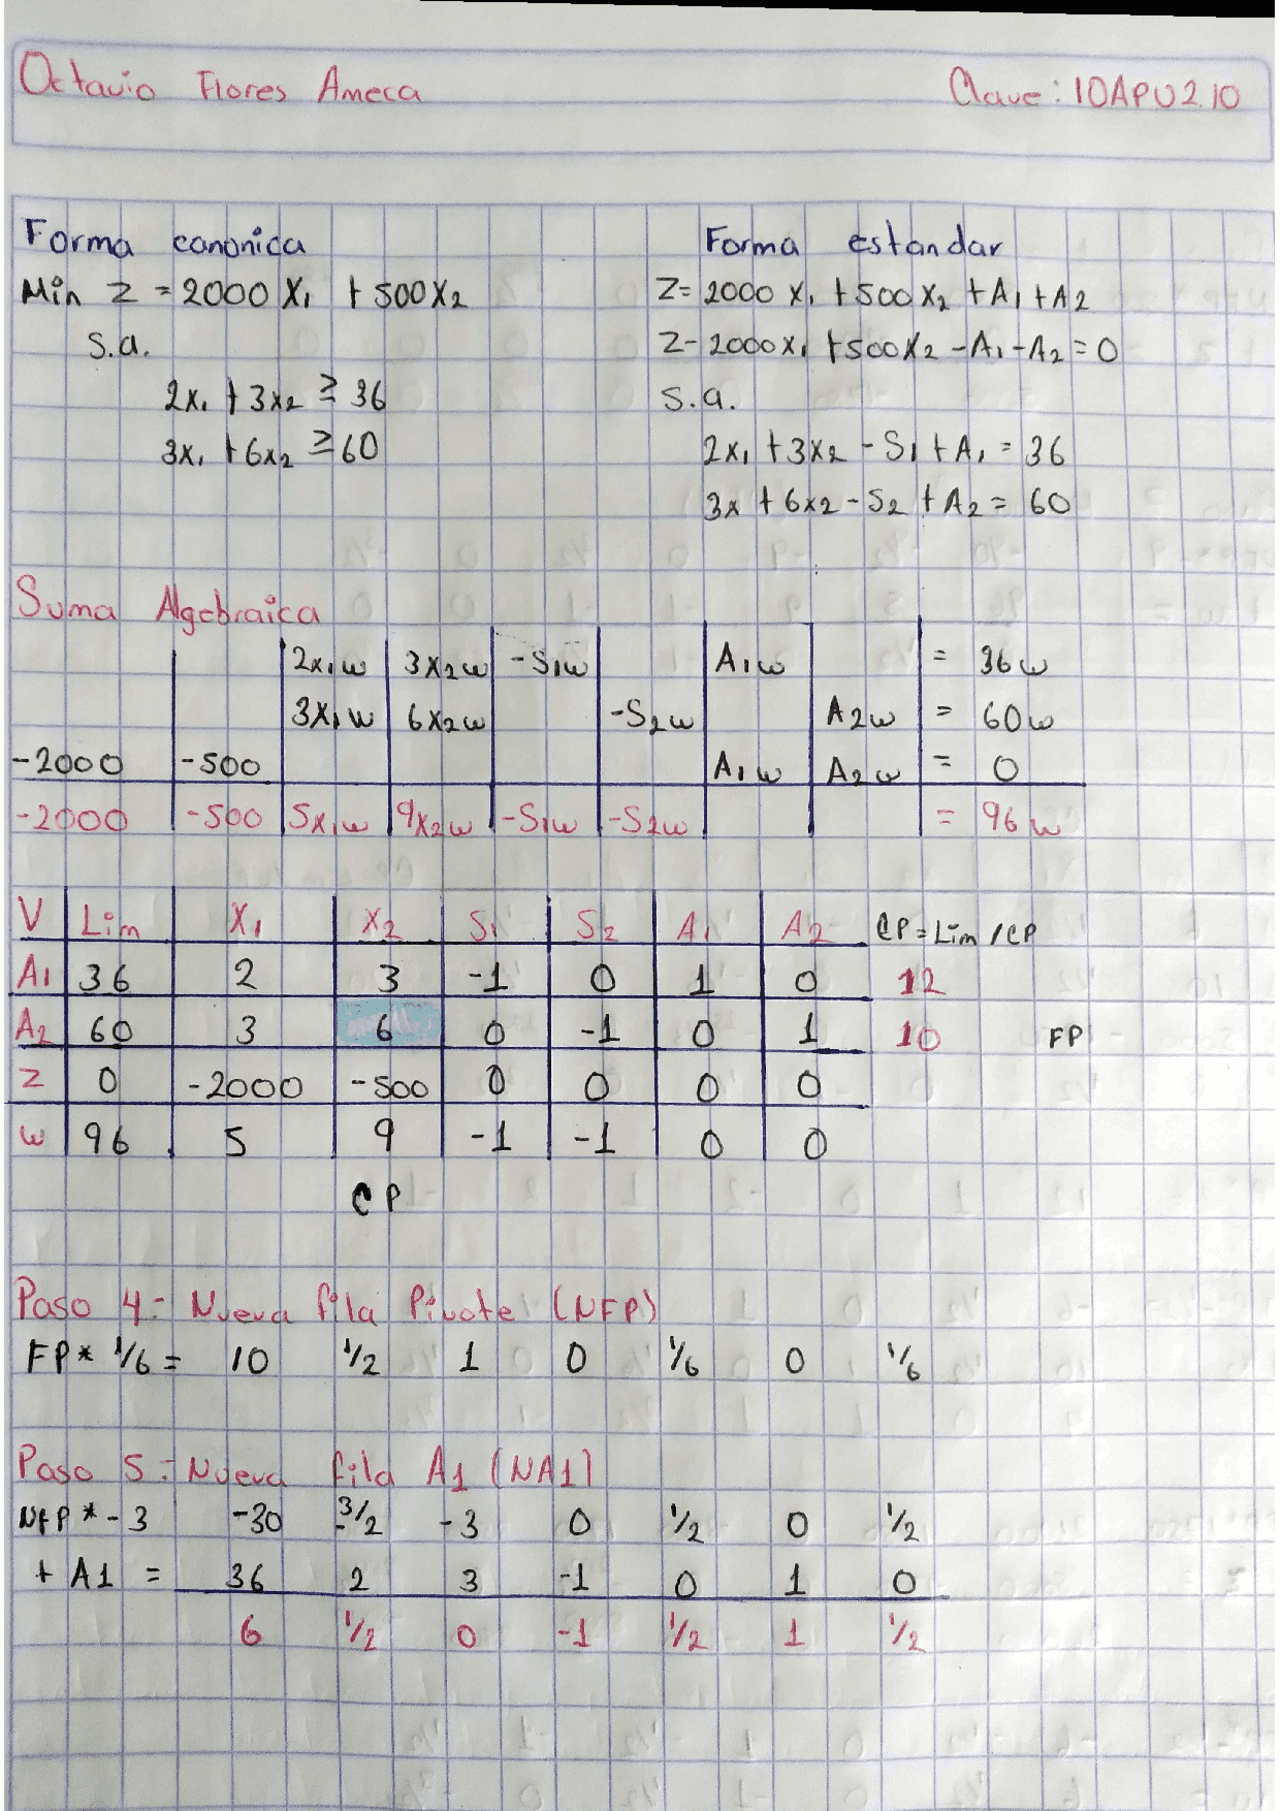 Octavio Flores Ameca Clave: 10APU2.10
Forma canonica Forma estandar
Min Z = 2000 X₁ + 500X₂ Z= 2000 X₁ + 500X₂ + A₁ + A2
s.a. Z- 2000x₁ + 500X₂ - A₁ - A₂ = 0
2x₁ + 3x₂ ≥ 36 s.a.
3x₁ + 6x₂ ≥ 60 2x₁ + 3x₂ - S₁ + A₁ = 36
3x + 6x2 - S2 + A2 = 60
Suma Algebraica
2x₁w 3x₂w -S₁w A₁w = 36w
3X₁w 6x₂w -S₂w A2w = 60w
-2000 -500 A₁w A₂w = 0
-2000 -500 5x₁w 9x₂w -S₁w -S₂w = 96w
V Lim X₁ X₂ S₁ S₂ A₁ A₂ CP = Lim / CP
A1 36 2 3 -1 0 1 0 12
A2 60 3 6 0 -1 0 1 10 FP
Z 0 -2000 -500 0 0 0 0
w 96 5 9 -1 -1 0 0
CP
Paso 4:- Nueva fila Pivote (NFP)
FP* 1/6 = 10 1/2 1 0 1/6 0 1/6
Paso 5:- Nueva fila A1 (NA1)
NFP * -3 -30 -3/2 -3 0 1/2 0 1/2
+ A1 = 36 2 3 -1 0 1 0
6 1/2 0 -1 1/2 1 1/2